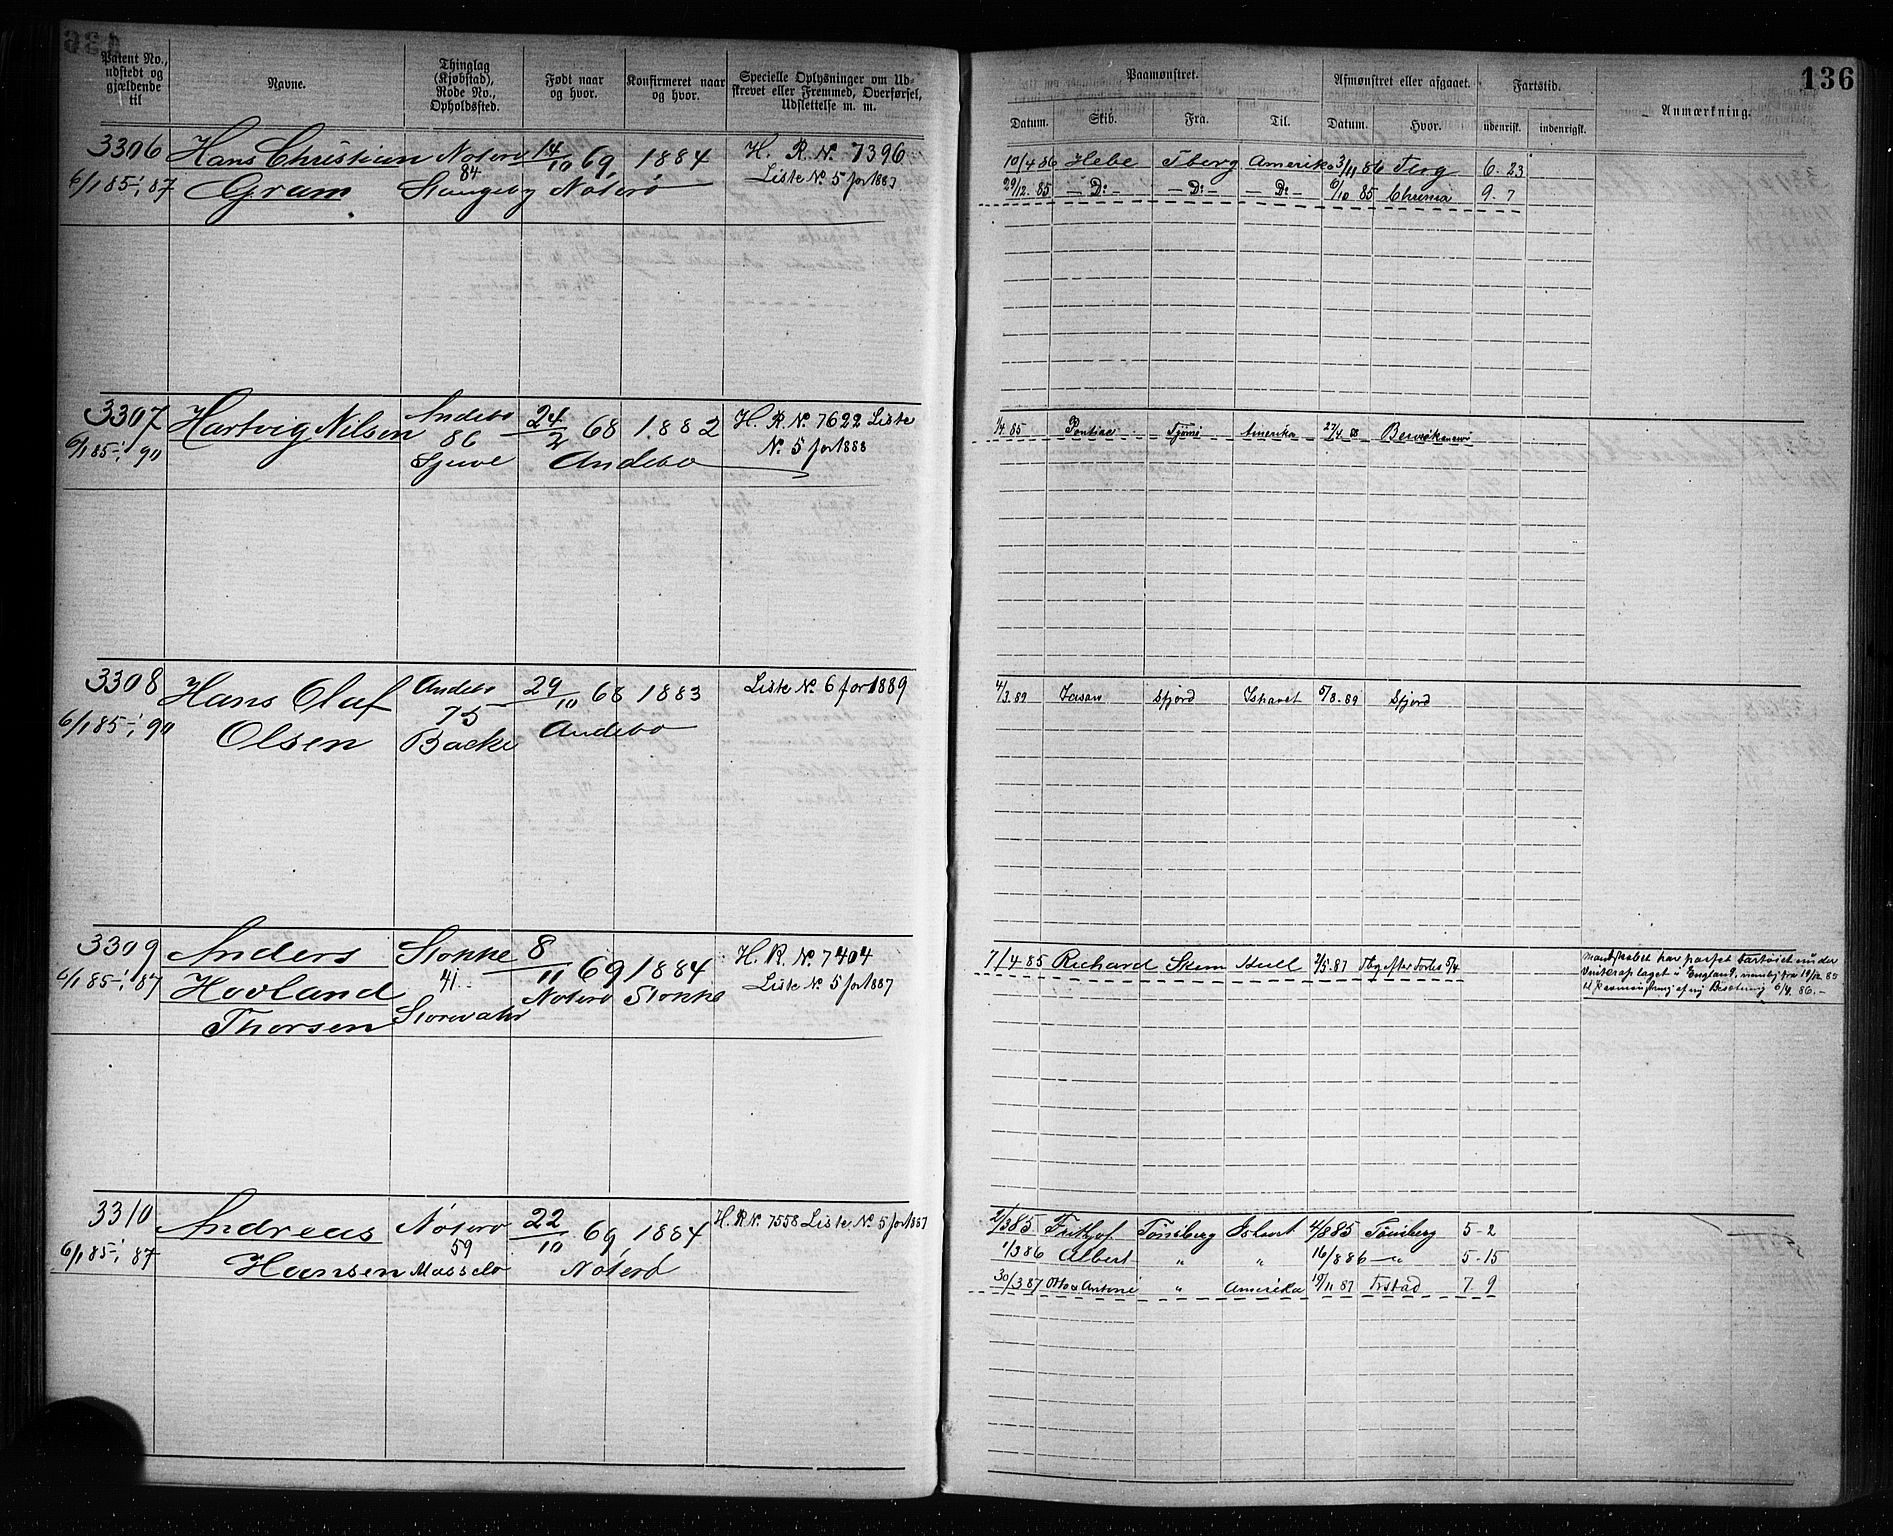 136
Patent No., udstedt og gjældende til
Navne.
Thinglag (Kjøbstad), Rode No., Opholdssted.
Født naar og hvor.
Konfirmeret naar og hvor.
Specielle Oplysninger om Udskrevet eller Fremmed, Overførsel, Udslettelse m. m.
Paamønstret.
Afmønstret eller afgaaet.
Fartstid.
Anmærkning.
Datum. Skib. Fra. Til. Datum. Hvor. udenrigsk. indenrigsk.
3306 Hans Christian Nøterø 14/10 69, 1884 H. R. N. 7396
6/1 85-'87 Gram 84 Stangeby Nøterø Liste No. 5 for 1887
10/4 86 Hebe Tberg Amerika 3/11 86 6. 23
29/12. 85 - Do - - Do - - Do - 6/10 85 Chrnia 9. 7
3307 Hartvig Nilsen Andebo 24/2 68 1882 H. R. N. 7622 Liste
6/1 85-'90 86 Andebo No. 5 for 1888
1/4 85 Pontiac Tjømø Amerika 27/4 88
3308 Hans Olaf Andebo 29/10 68 1883 Liste No. 6 for 1889
6/1 85-'90 Olsen 75 Backe Andebo
4/3. 89 Jason Sfjord Ishavet 5/8. 89 Sfjord
3309 Anders Stokke 8/11 69 1884 H. R. N. 7404
6/1 85-'87 Hovland 41 Nøterø Stokke Liste No. 5 for 1887
Thorsen
7/4 85 Richard Hull 2/5. 87
3310 Andreas Nøterø 22/10 69 1884 H. R. N. 7558 Liste No. 5 for 1887
6/1 85-'87 Hansen 59 Nøterø
2/3 85 Frithjof Tønsberg Ishavet 4/8 85 Tønsberg 5-2
1/3 86 Albert " " 16/8 86 - " 5-15
30/3 87 Otto & Antonie " Amerika 19/11 87 Frstad 7. 9